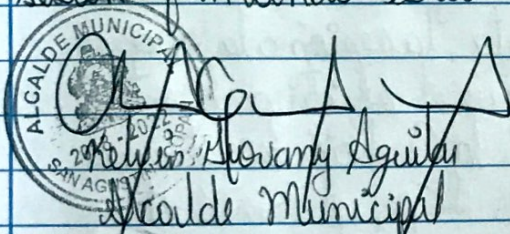 ALCALDE MUNICIPAL
2018-2022
SAN AGUSTIN
Kelvin Giovany Aguilar
Alcalde Municipal